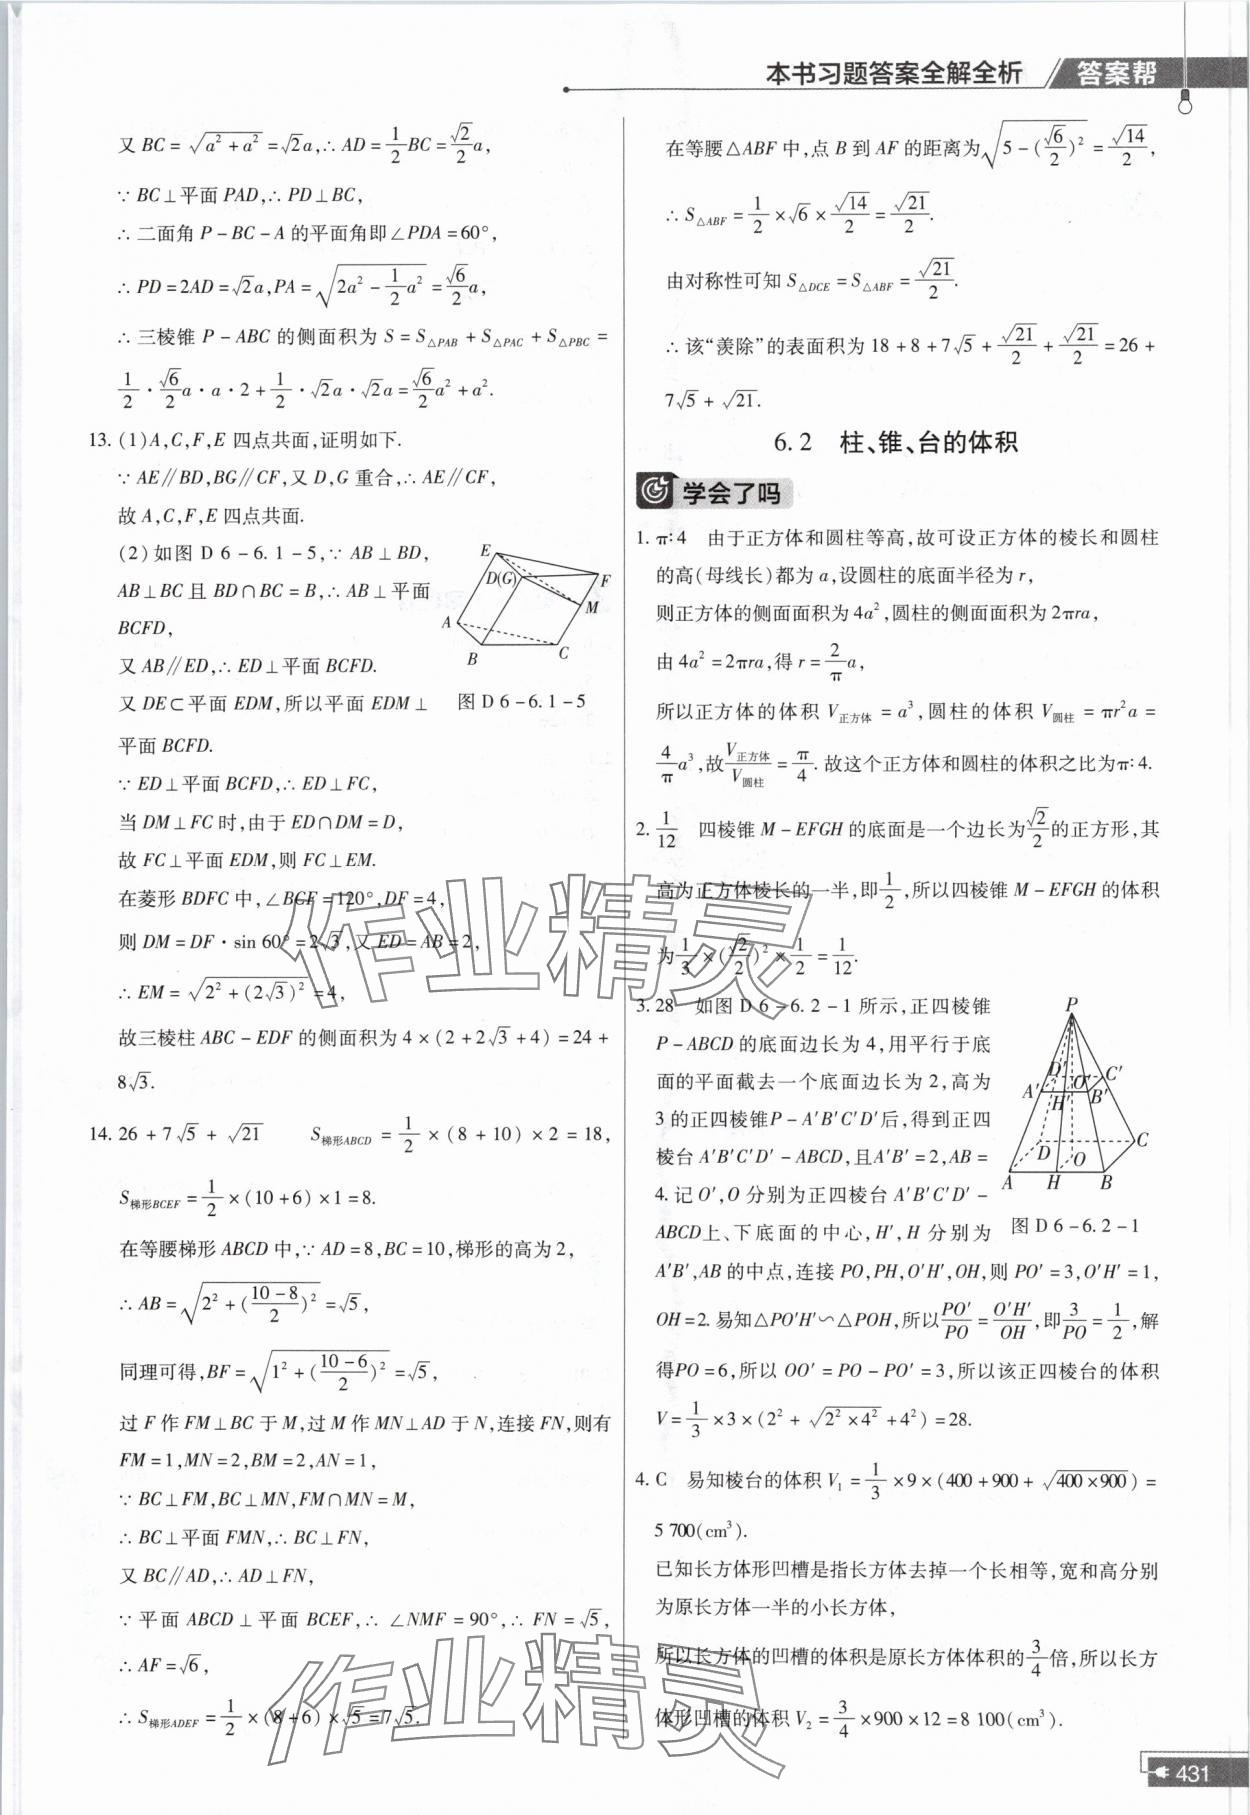 本书习题答案全解全析 答案帮
又 BC = √(a² + a²) = √2a,∴ AD = 1/2 BC = √2/2 a,
∵ BC⊥平面 PAD,∴ PD⊥BC,
∴ 二面角 P - BC - A 的平面角即∠PDA = 60°,
∴ PD = 2AD = √2a, PA = √(2a² - 1/2 a²) = √6/2 a,
∴ 三棱锥 P - ABC 的侧面积为 S = S△PAB + S△PAC + S△PBC =
1/2 · √6/2 a · a · 2 + 1/2 · √2a · √2a = √6/2 a² + a².
13. (1)A,C,F,E 四点共面,证明如下.
∵ AE∥BD,BG∥CF,又 D,G 重合,∴ AE∥CF,
故 A,C,F,E 四点共面.
(2)如图 D 6-6.1-5,∵ AB⊥BD,
AB⊥BC 且 BD∩BC = B,∴ AB⊥平面
BCFD,
又 AB∥ED,∴ ED⊥平面 BCFD.
又 DE⊂平面 EDM,所以平面 EDM⊥
平面 BCFD.
E
D(G)
F
M
A
B
C
图 D 6-6.1-5
∵ ED⊥平面 BCFD,∴ ED⊥FC,
当 DM⊥FC 时,由于 ED∩DM = D,
故 FC⊥平面 EDM,则 FC⊥EM.
在菱形 BDFC 中,∠BCF = 120°,DF = 4,
则 DM = DF · sin 60° = 2√3,又 ED = AB = 2,
∴ EM = √(2² + (2√3)²) = 4,
故三棱柱 ABC - EDF 的侧面积为 4×(2 + 2√3 + 4) = 24 +
8√3.
14. 26 + 7√5 + √21 S梯形ABCD = 1/2 × (8 + 10) × 2 = 18,
S梯形BCEF = 1/2 × (10 + 6) × 1 = 8.
在等腰梯形 ABCD 中,∵ AD = 8, BC = 10,梯形的高为 2,
∴ AB = √(2² + ((10-8)/2)²) = √5,
同理可得,BF = √(1² + ((10-6)/2)²) = √5,
过 F 作 FM⊥BC 于 M,过 M 作 MN⊥AD 于 N,连接 FN,则有
FM = 1, MN = 2, BM = 2, AN = 1,
∵ BC⊥FM,BC⊥MN,FM∩MN = M,
∴ BC⊥平面 FMN,∴ BC⊥FN,
又 BC∥AD,∴ AD⊥FN,
∵ 平面 ABCD⊥平面 BCEF,∴ ∠NMF = 90°,∴ FN = √5,
∴ AF = √6,
∴ S梯形ADEF = 1/2 × (8+6) × √5 = 7√5.
在等腰△ABF 中,点 B 到 AF 的距离为√(5 - (√6/2)²) = √14/2,
∴ S△ABF = 1/2 × √6 × √14/2 = √21/2.
由对称性可知 S△DCE = S△ABF = √21/2.
∴ 该“羡除”的表面积为 18 + 8 + 7√5 + √21/2 + √21/2 = 26 +
7√5 + √21.
6.2 柱、锥、台的体积
学会了吗
1. π∶4 由于正方体和圆柱等高,故可设正方体的棱长和圆柱
的高(母线长)都为 a,设圆柱的底面半径为 r,
则正方体的侧面面积为 4a²,圆柱的侧面面积为 2πra,
由 4a² = 2πra,得 r = 2/π a,
所以正方体的体积 V正方体 = a³,圆柱的体积 V圆柱 = πr²a =
4/π a³,故 V正方体/V圆柱 = π/4. 故这个正方体和圆柱的体积之比为π∶4.
2. 1/12 四棱锥 M - EFGH 的底面是一个边长为√2/2的正方形,其
高为正方体棱长的一半,即1/2,所以四棱锥 M - EFGH 的体积
为1/3 × (√2/2)² × 1/2 = 1/12.
3. 28 如图 D 6-6.2-1 所示,正四棱锥
P - ABCD 的底面边长为 4,用平行于底
面的平面截去一个底面边长为 2,高为
3 的正四棱锥 P - A′B′C′D′后,得到正四
棱台 A′B′C′D′ - ABCD,且A′B′ = 2, AB =
4. 记 O′,O 分别为正四棱台 A′B′C′D′ -
ABCD上、下底面的中心,H′,H 分别为
P
D′
O′
C′
A′
H′
B′
D
O
C
A
H
B
图 D 6-6.2-1
A′B′,AB 的中点,连接 PO,PH,O′H′,OH,则 PO′ = 3, O′H′ = 1,
OH = 2. 易知△PO′H′∽△POH,所以 PO′/PO = O′H′/OH,即 3/PO = 1/2,解
得PO = 6,所以 OO′ = PO - PO′ = 3,所以该正四棱台的体积
V = 1/3 × 3 × (2² + √(2² × 4²) + 4²) = 28.
4. C 易知棱台的体积 V₁ = 1/3 × 9 × (400 + 900 + √(400×900)) =
5 700(cm³).
已知长方体形凹槽是指长方体去掉一个长相等,宽和高分别
为原长方体一半的小长方体,
所以长方体的凹槽的体积是原长方体体积的3/4倍,所以长方
体形凹槽的体积 V₂ = 3/4 × 900 × 12 = 8 100(cm³).
431
作业精灵
作业精灵